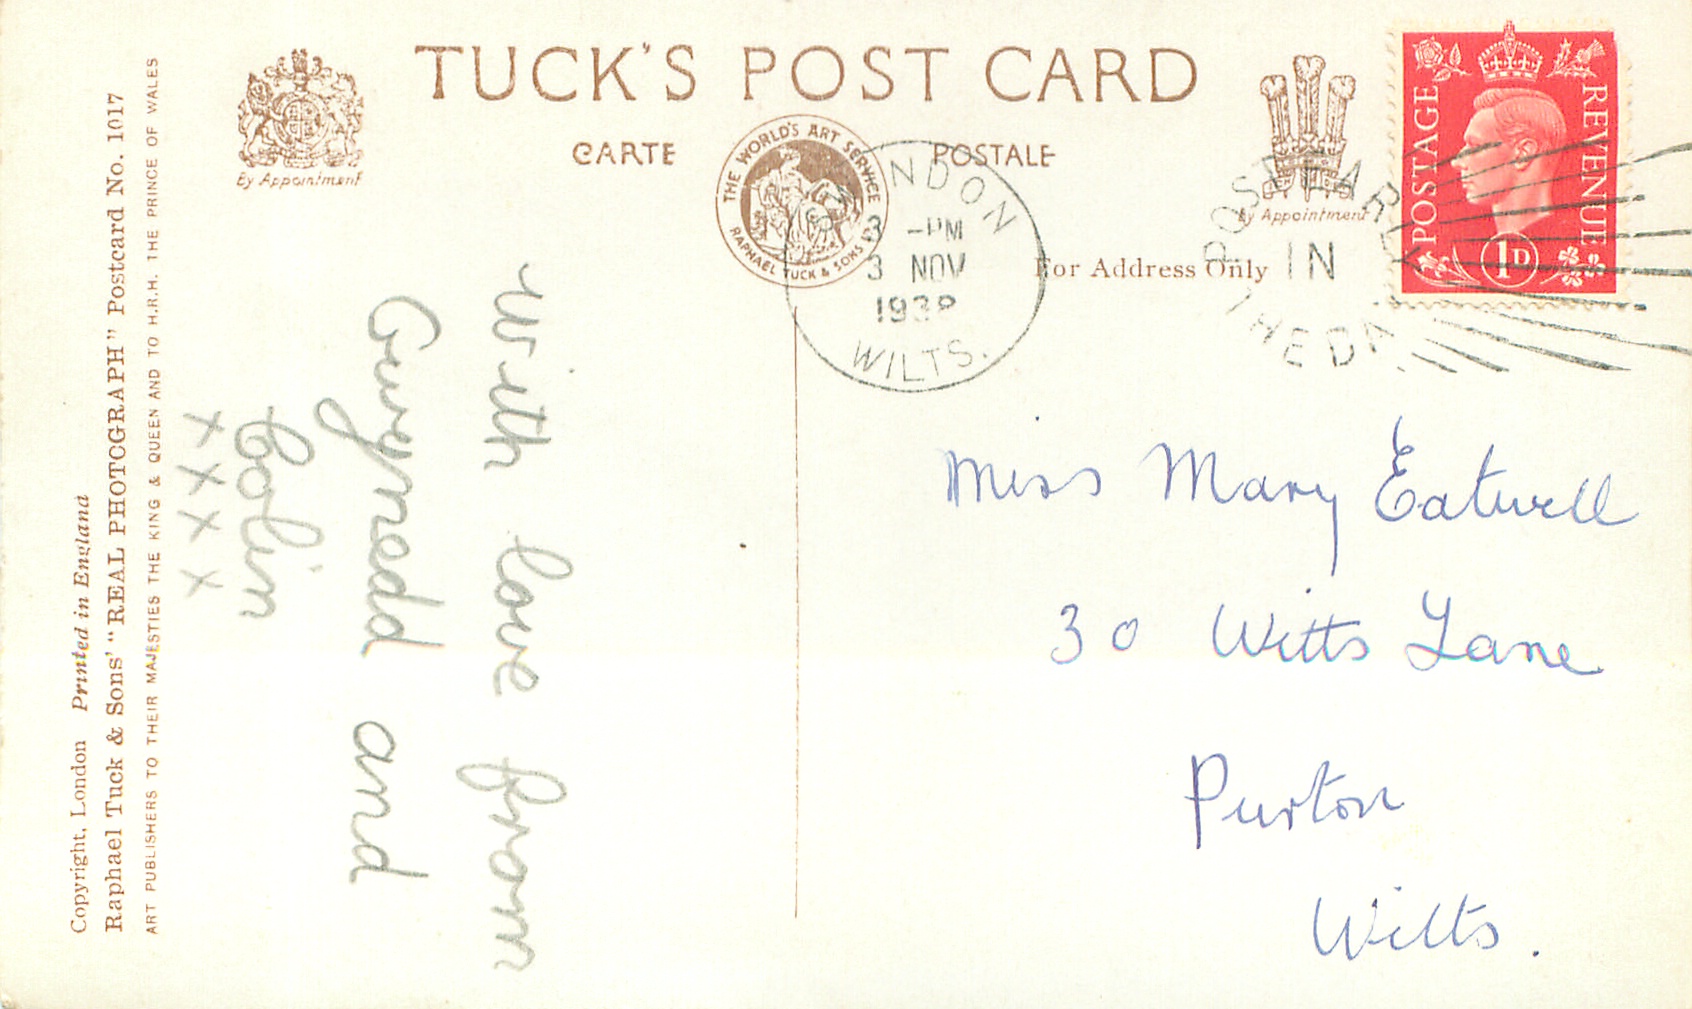 TUCK'S POST CARD
CARTE POSTALE
By Appointment
THE WORLD'S ART SERVICE
RAPHAEL TUCK & SONS LTD
By Appointment
For Address Only
POSTAGE REVENUE
1D
NDON
3 -PM
3 NOV
1938
WILTS.
POST EARLY
IN
THE DA
with love from
Gwynedd and
Colin
x x x x
Miss Mary Eatwell
30 Witts Lane
Purton
Wilts.
Copyright, London Printed in England
Raphael Tuck & Sons' "REAL PHOTOGRAPH" Postcard No. 1017
ART PUBLISHERS TO THEIR MAJESTIES THE KING & QUEEN AND TO H.R.H. THE PRINCE OF WALES